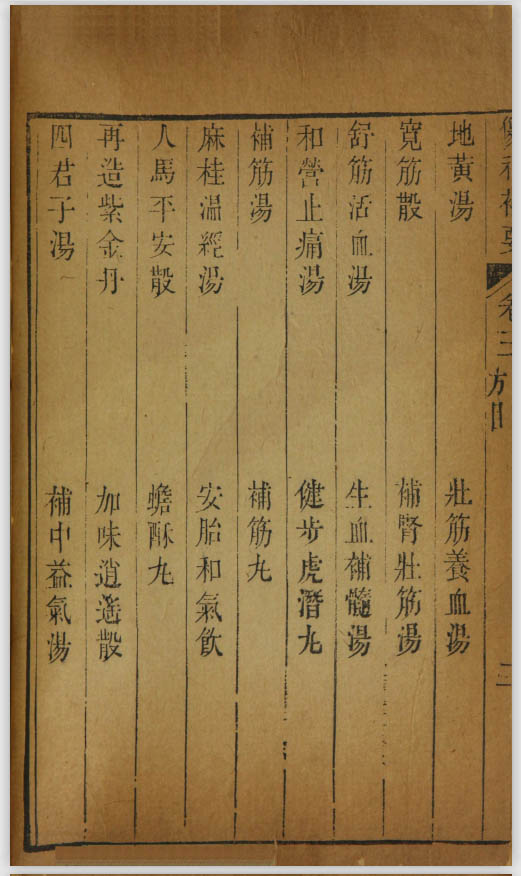 傷科補要 卷三 方目 二
地黃湯 壯筋養血湯
寬筋散 補腎壯筋湯
舒筋活血湯 生血補髓湯
和營止痛湯 健步虎潛丸
補筋湯 補筋丸
麻桂溫經湯 安胎和氣飲
人馬平安散 蟾酥丸
再造紫金丹 加味逍遙散
四君子湯 補中益氣湯